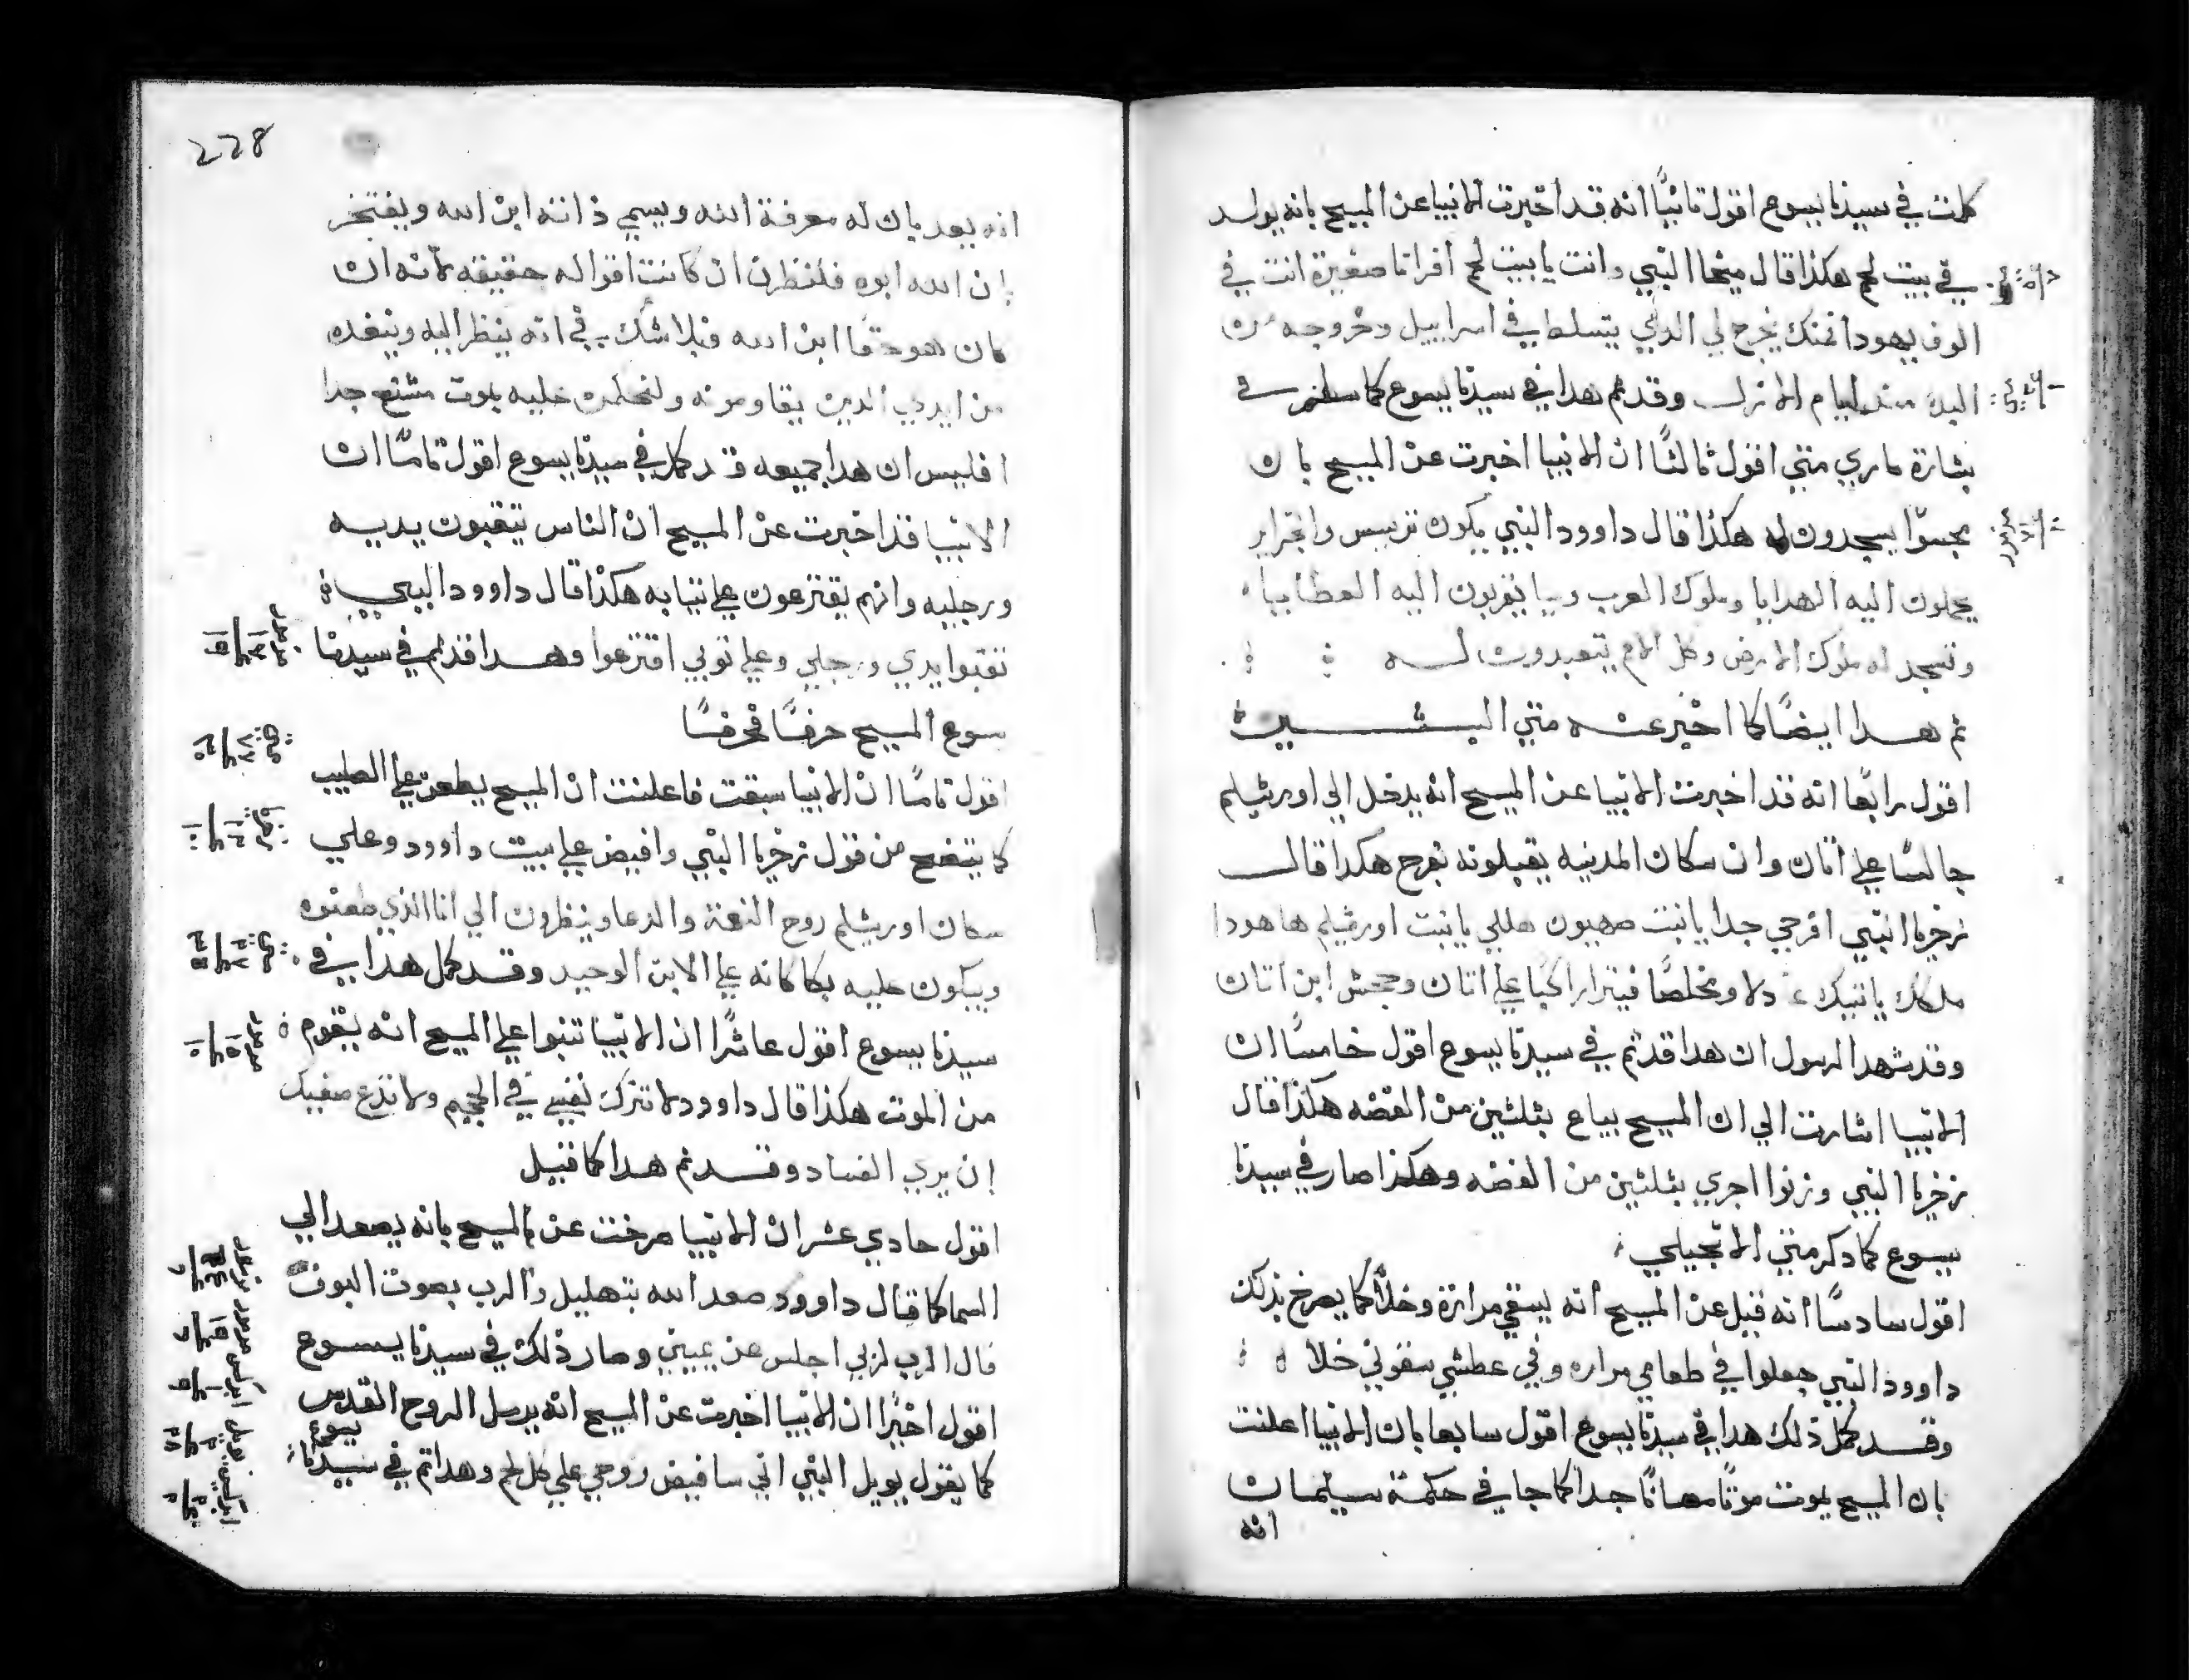 كملت في سيدنا يسوع اقول ثانيًا انه قد اخبرت الانبيا عن المسيح بانه يولد
في بيت لحم هكذا قال ميخا النبي وانت يا بيت لحم افراتا صغيرة انت في
الوف يهودا فمنك يخرج لي الذي يتسلط في اسراييل وخروجه من
البدء منذ ايام الازل وقد تم هدا في سيدنا يسوع كما سطر في
بشارة ماري متي اقول ثالثًا ان الانبيا اخبرت عن المسيح بان
مجوسًا يسجدون له هكذا قال داوود النبي يكون ترسيس والجزاير
يحملون اليه الهدايا وملوك العرب وسبا يقربون اليه العطايا
وتسجد له ملوك الارض وكل الامم يتعبدون له
تم هدا ايضًا كما اخبر عنه متي البشير
اقول رابعًا انه قد اخبرت الانبيا عن المسيح انه يدخل الي اورشليم
جالسًا علي اتان وان سكان المدينه يقبلونه بفرح هكدا قال
زخريا النبي افرحي جدا يا بنت صهيون هللي يا بنت اورشليم ها هودا
ملكك ياتيك عادلا ومخلصًا فقيرا راكبًا علي اتان وجحش ابن اتان
وقد شهد الرسول ان هدا قد تم في سيدنا يسوع اقول خامسًا ان
الانبيا اشارت الي ان المسيح يباع بثلثين من الفضه هكذا قال
زخريا النبي وزنوا اجري بثلثين من الفضه وهكذا صار في سيدنا
يسوع كما دكر متي الانجيلي
اقول سادسًا انه قيل عن المسيح انه يسقي مرارة وخلاً كما يصرخ بذلك
داوود النبي جعلوا في طعامي مراره وفي عطشي سقوني خلا
وقد كمل ذلك هدا في سيدنا يسوع اقول سابعا بان الانبيا اعلنت
بان المسيح يموت موتًا مهانًا جدا كما جا في حكمة سليمان
انه
228
انه يعد بان له معرفة الله ويسمي ذاته ابن الله ويفتخر
بان الله ابوه فلننظرن ان كانت اقواله حقيقه لانه ان
كان هو حقًا ابن الله فلا شك في انه ينظر اليه وينقده
من ايدي الدين يقاومونه ولنحكمن عليه بموت مشنع جدا
افليس ان هدا جميعه قد كمل في سيدنا يسوع اقول ثامنًا ان
الانبيا قد اخبرت عن المسيح ان الناس يثقبون يديه
ورجليه وانهم يقترعون علي ثيابه هكذا قال داوود النبي
ثقبوا يدي ورجلي وعلي ثوبي اقترعوا وهدا قد تم في سيدنا
يسوع المسيح حرفًا فحرفًا
اقول تاسعًا ان الانبيا سبقت فاعلنت ان المسيح يطعن علي الصليب
كما يتضح من قول زخريا النبي وافيض علي بيت داوود وعلي
سكان اورشليم روح النعمة والدعا وينظرون الي انا الذي طعنوه
ويبكون عليه بكا كانه علي الابن الوحيد وقد كمل هدا في
سيدنا يسوع اقول عاشرًا ان الانبيا تنبوا علي المسيح انه يقوم
من الموت هكذا قال داوود لا تترك نفسي في الجحيم ولا تدع صفيك
ان يري الفساد وقد تم هدا كما قيل
اقول حادي عشر ان الانبيا صرخت عن المسيح بانه يصعد الي
السما كما قال داوود صعد الله بتهليل والرب بصوت البوق
قال الرب لربي اجلس عن يميني وصار ذلك في سيدنا يسوع
اقول اخيرًا ان الانبيا اخبرت عن المسيح انه يرسل الروح القدس
كما يقول يوييل النبي اني سافيض روحي علي كل لحم وهدا تم في سيدنا يسوع